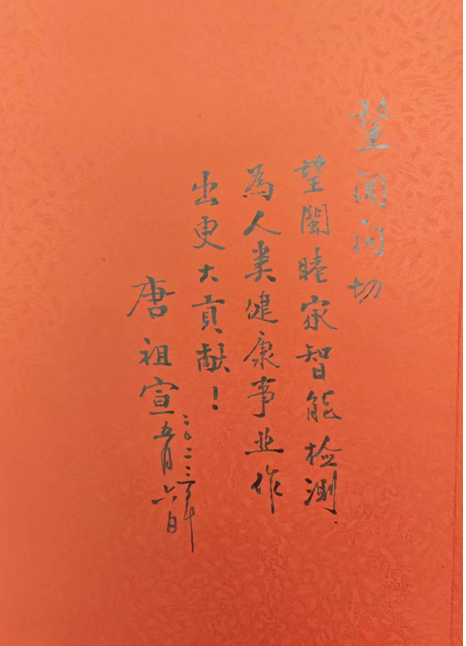 望聞问切
望睦家智能检测、
为人类健康事业作
出更大贡献！
唐祖宣
二〇二三年
五月六日